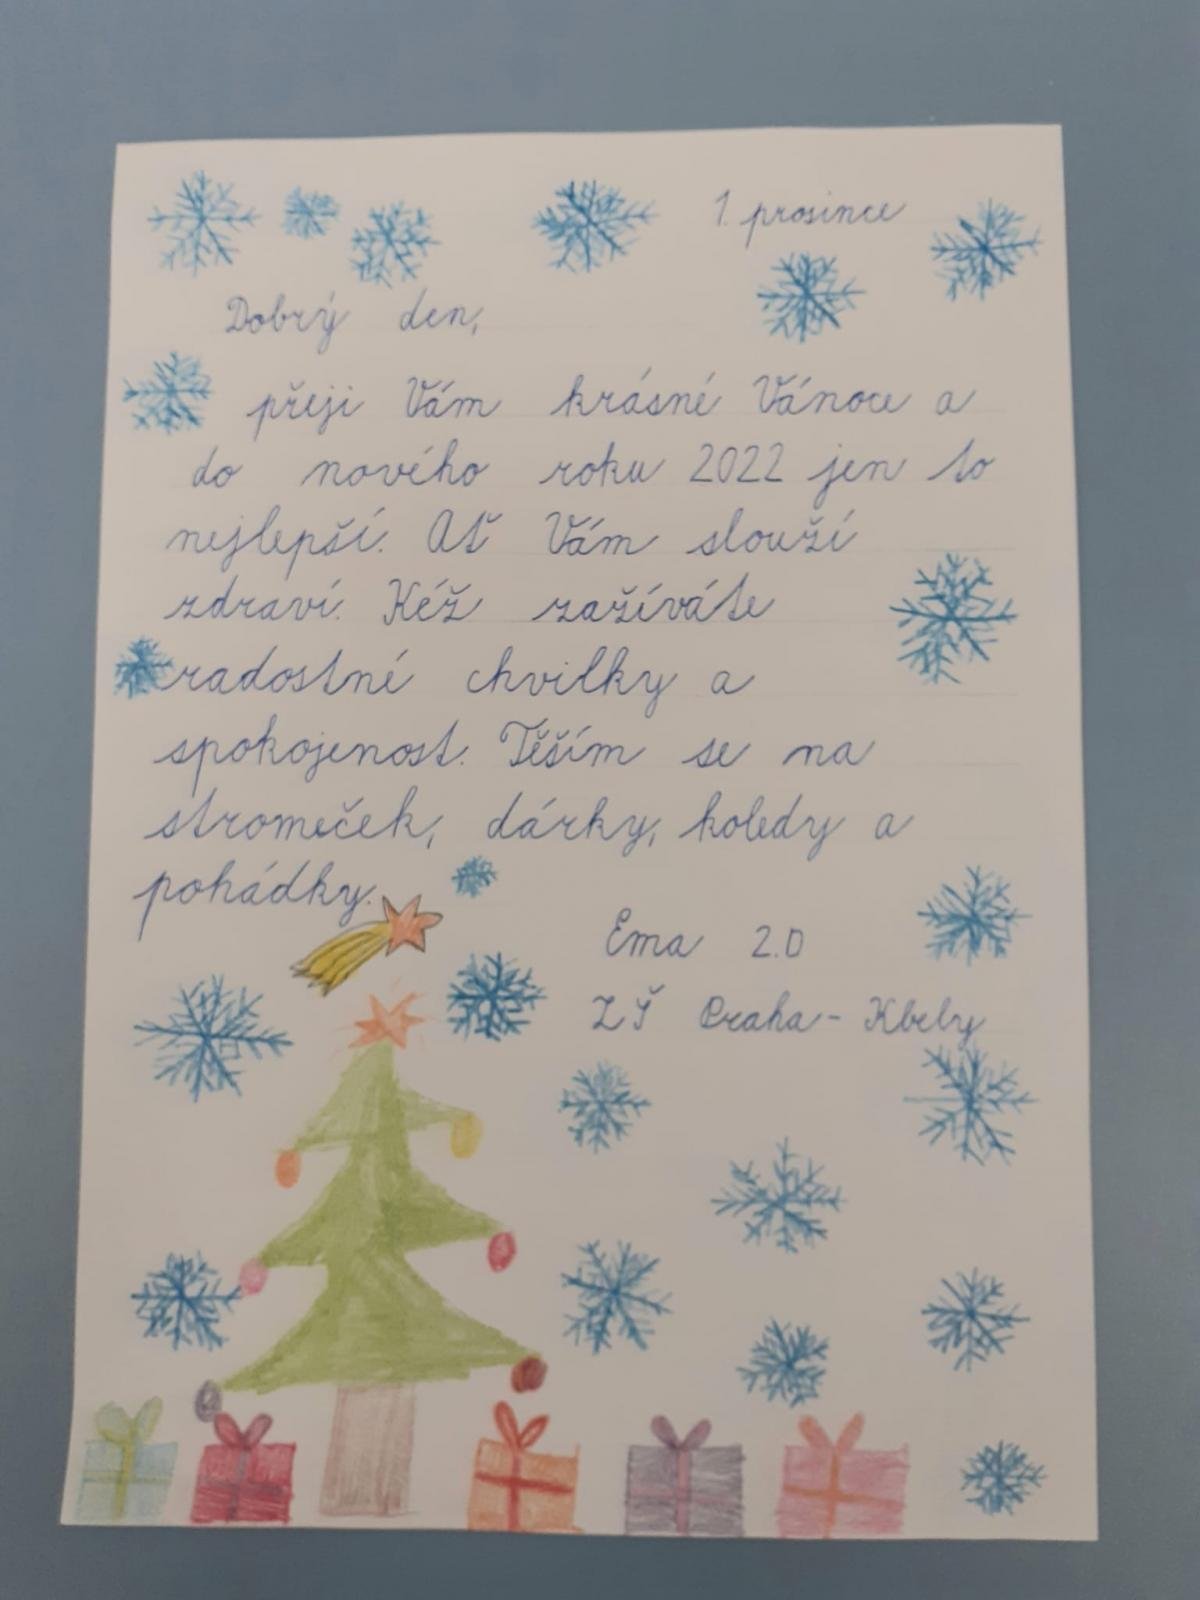 1. prosince
Dobrý den,
přeji Vám krásné Vánoce a
do nového roku 2022 jen to
nejlepší. Ať Vám slouží
zdraví. Kéž zažíváte
radostné chvilky a
spokojenost. Těším se na
stromeček, dárky, koledy a
pohádky.
Ema 2.D
ZŠ Praha - Kbely